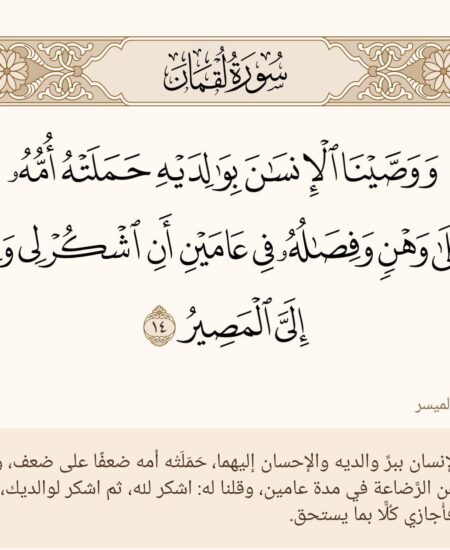 سُورَةُ لُقْمَانَ
وَوَصَّيْنَا ٱلْإِنسَٰنَ بِوَٰلِدَيْهِ حَمَلَتْهُ أُمُّهُۥ
وَهْنٍ وَفِصَٰلُهُۥ فِى عَامَيْنِ أَنِ ٱشْكُرْ لِى
إِلَىَّ ٱلْمَصِيرُ ١٤
الميسر
الإنسان ببرِّ والديه والإحسان إليهما، حَمَلَتْه أمه ضعفًا على ضعف،
الرَّضاعة في مدة عامين، وقلنا له: اشكر لله، ثم اشكر لوالديك،
فأجازي كُلًّا بما يستحق.